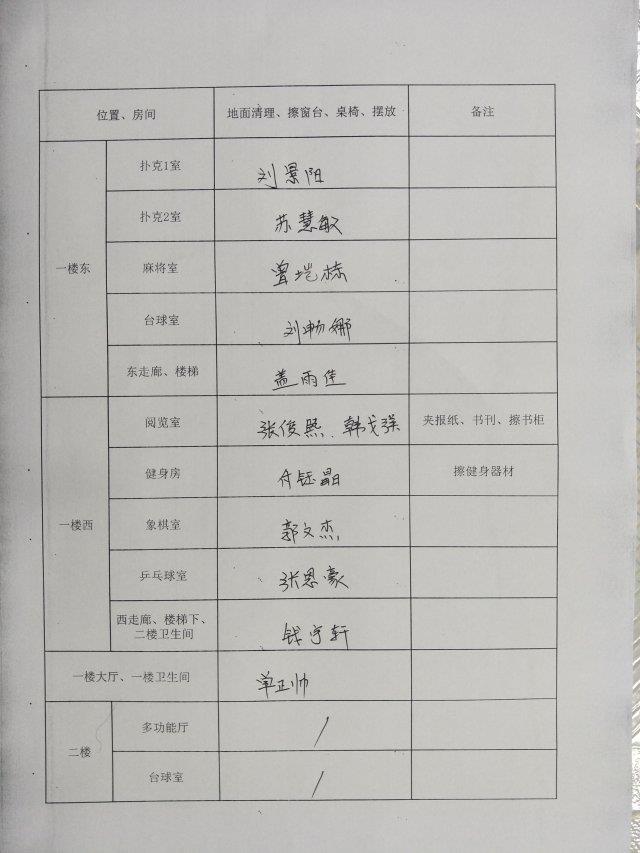 位置、房间 地面清理、擦窗台、桌椅、摆放 备注
一楼东
扑克1室 刘景阳
扑克2室 苏慧敏
麻将室 曾垲栋
台球室 刘畅娜
东走廊、楼梯 盖雨佳
一楼西
阅览室 张俊熙、韩戈强 夹报纸、书刊、擦书柜
健身房 付钰晶 擦健身器材
象棋室 郭文杰
乒乓球室 张恩豪
西走廊、楼梯下、
二楼卫生间 钱宇轩
一楼大厅、一楼卫生间 单正帅
二楼
多功能厅 /
台球室 /